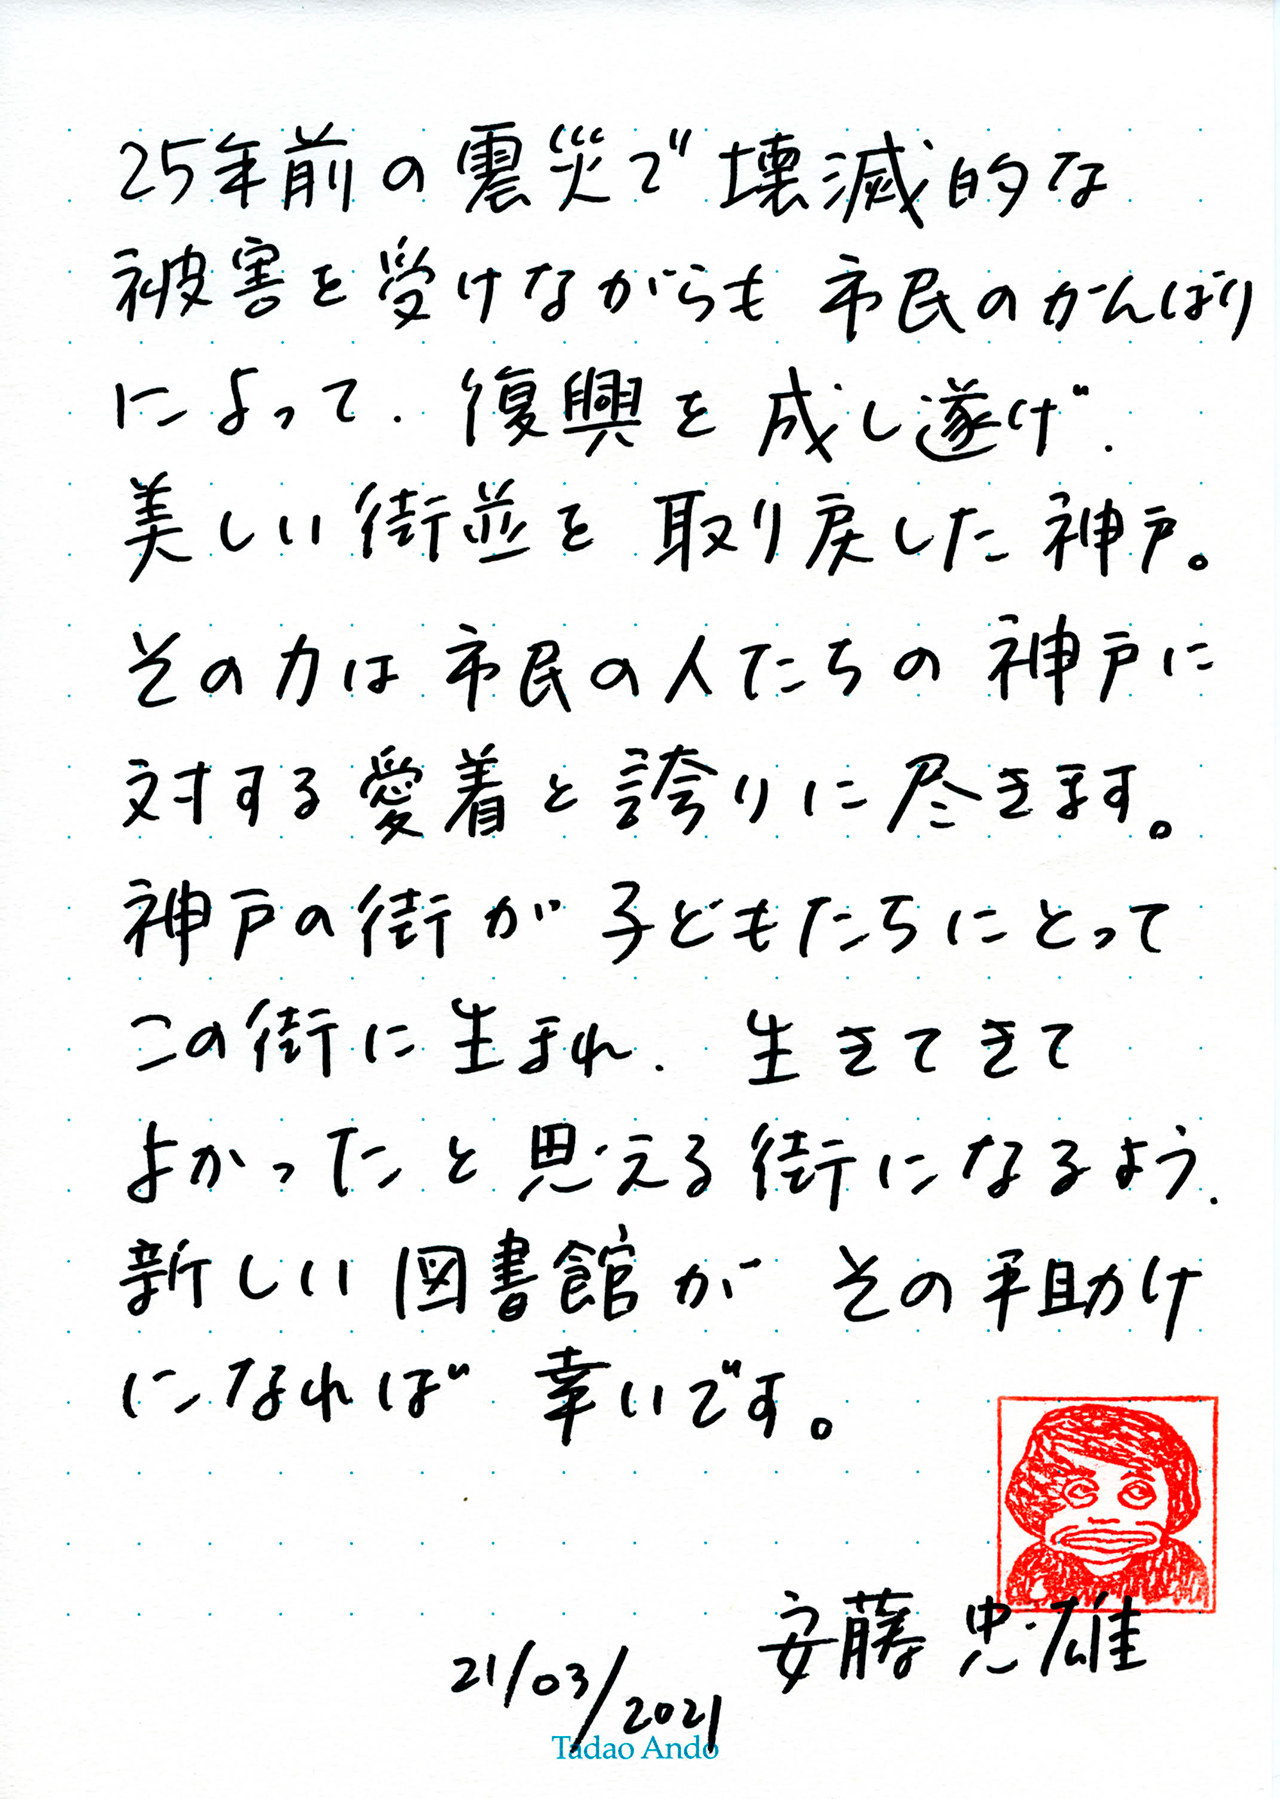 25年前の震災で壊滅的な
被害を受けながらも 市民のがんばり
によって. 復興を 成し遂げ.
美しい街並を 取り戻した 神戸。
その力は 市民の人たちの 神戸に
対する愛着と誇りに尽きます。
神戸の街が 子どもたちにとって
この街に生まれ. 生きてきて
よかったと思える街になるよう.
新しい図書館が その手助け
になれば 幸いです。
安藤 忠雄
21/03/2021
Tadao Ando